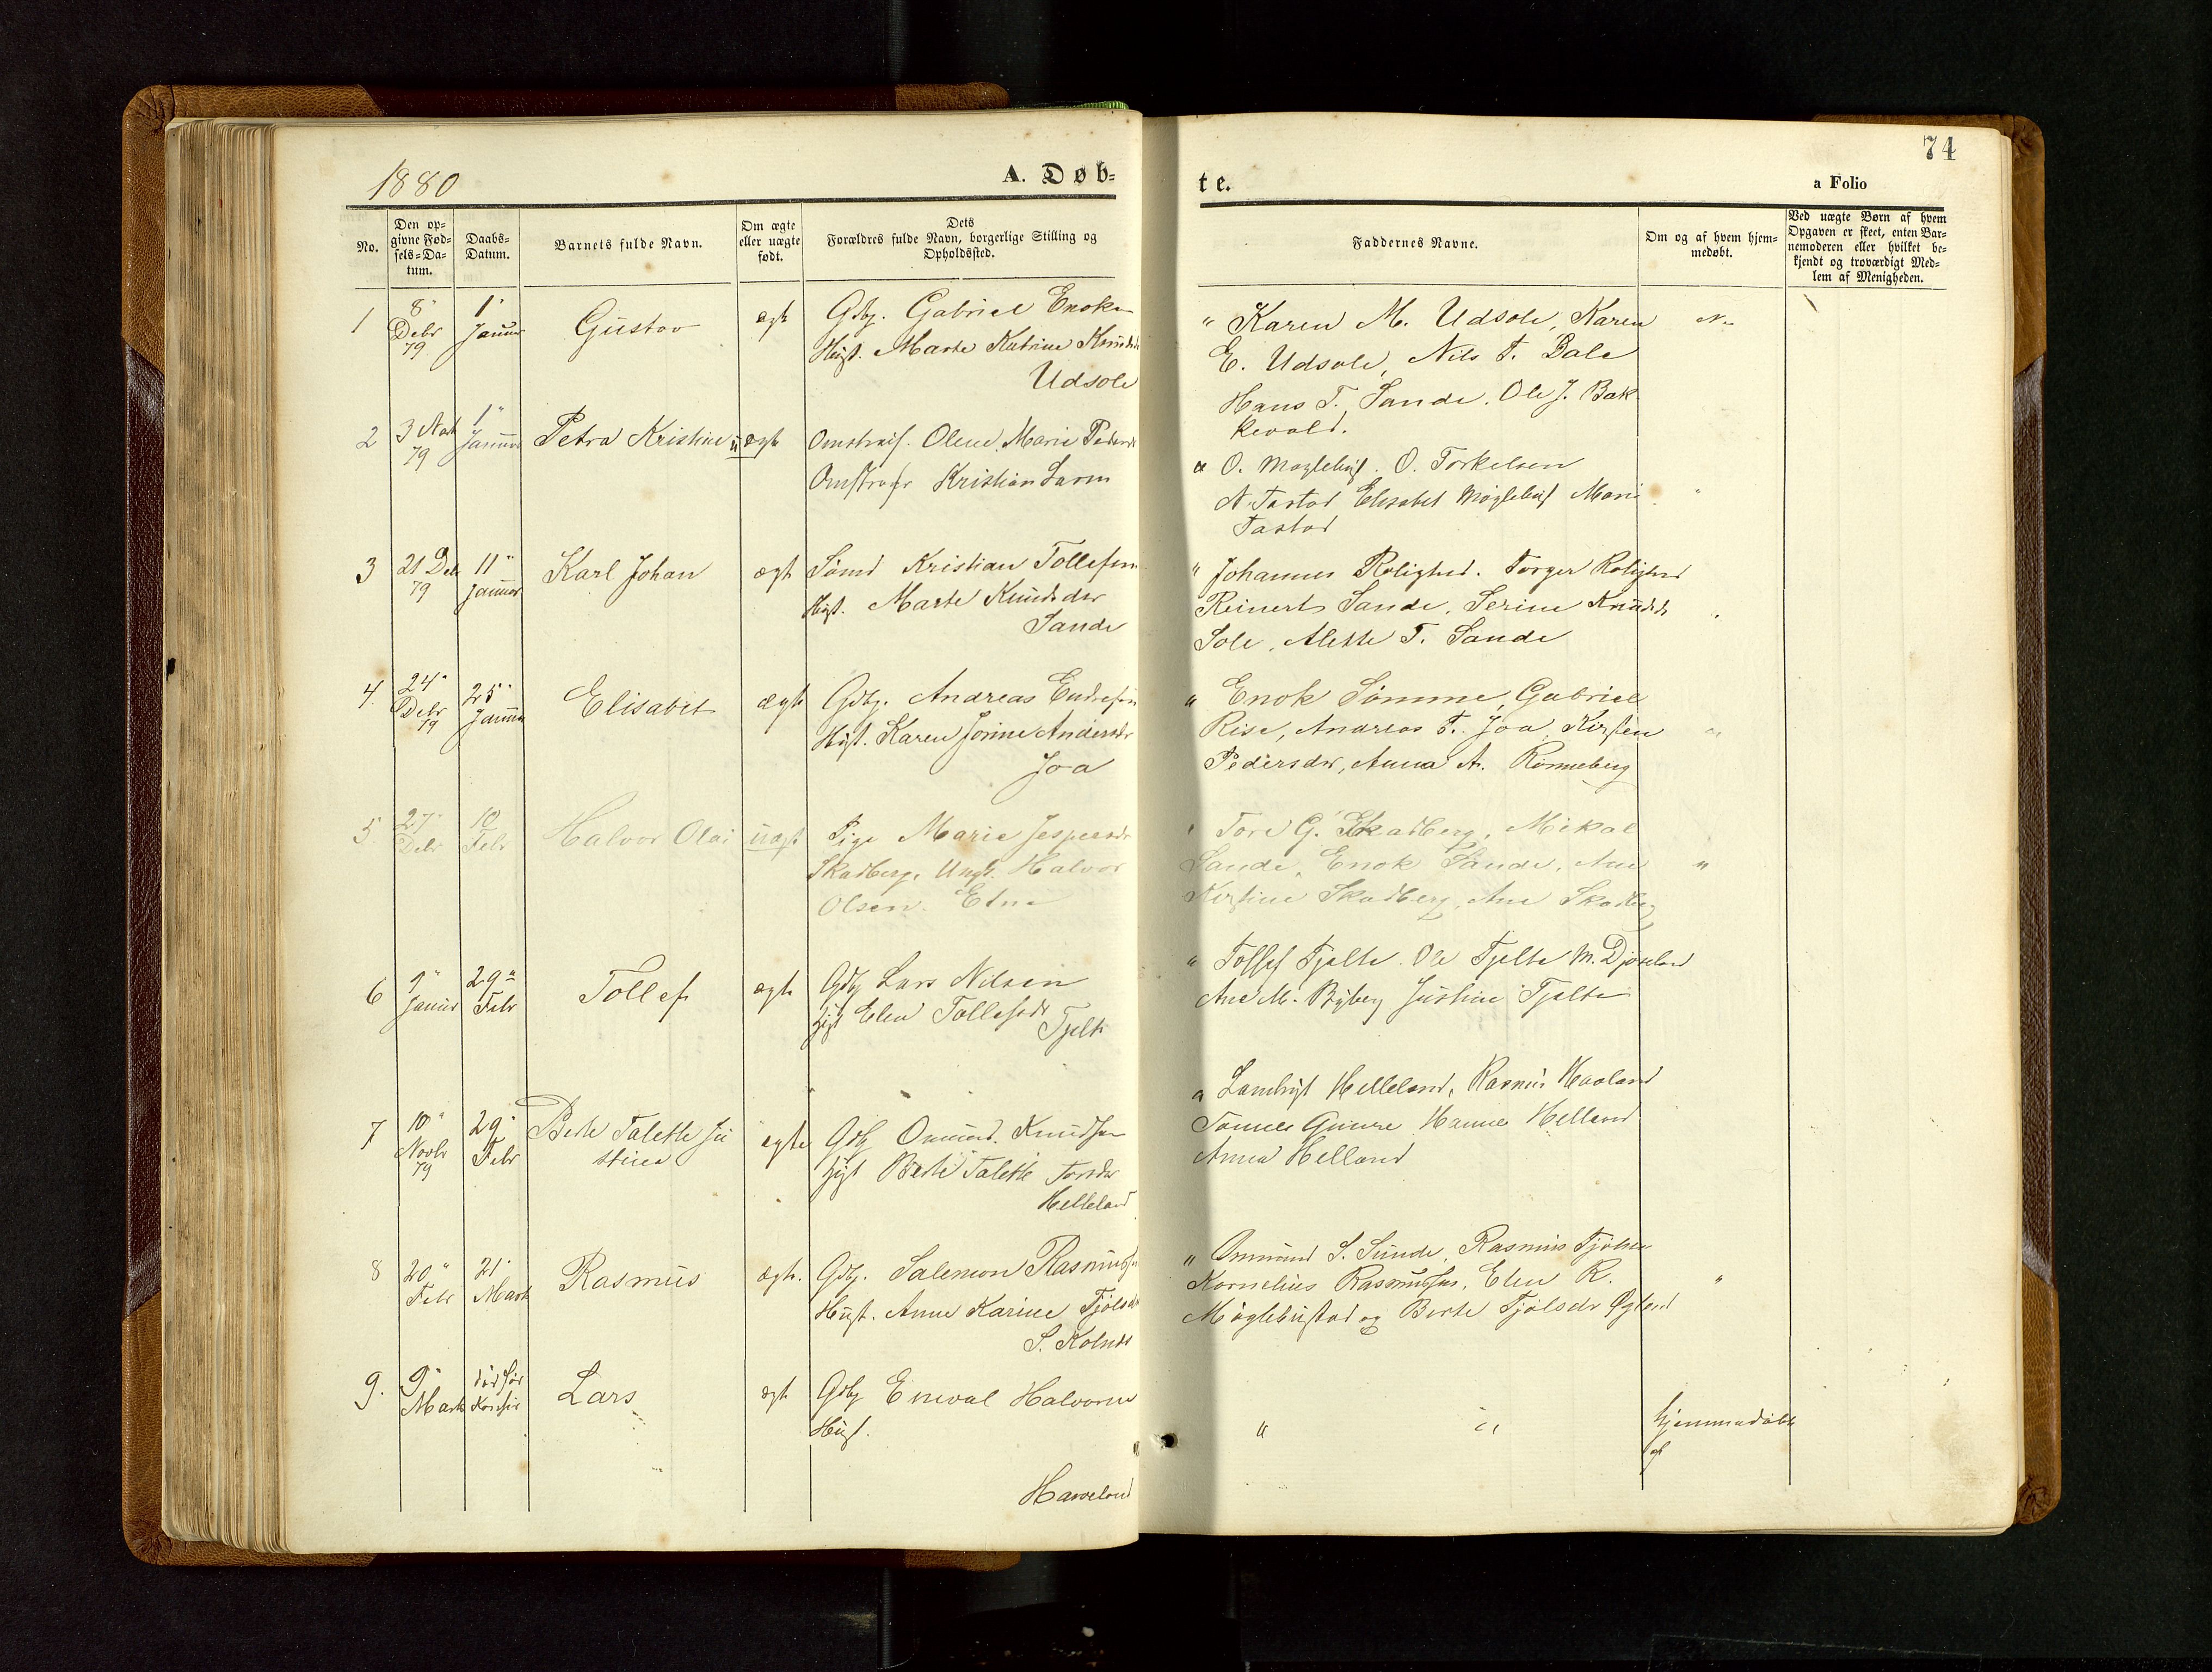 74
1880
A. Døb=
te.
a Folio
No.
Den op=
givne Fød=
sels=Da=
tum.
Daabs=
Datum.
Barnets fulde Navn.
Om ægte
eller uægte
født.
Dets
Forældres fulde Navn, borgerlige Stilling og
Opholdssted.
Faddernes Navne.
Om og af hvem hjem=
medøbt.
Ved uægte Børn af hvem
Opgaven er skeet, enten Bar=
nemoderen eller hvilket be=
kjendt og troværdigt Med=
lem af Menigheden.
1
8"
Debr
79
1"
Januar
Gustav
ægte
Gdbr. Gabriel Enoks
Hust. Marte Katrine Knudsdr
Udsole
" Karen M. Udsole, Karen
E. Udsole, Nils T. Dale
Hans T. Sande. Ole J. Bak
kevold.
2
79
1"
Januar
Petra Kristine
Olene Marie Peders
Kristian
O. Møglebust. O. Torkelsen
N. Tastad Elisabet Møglebust Mari
Tastad
3
21 Deb
79
11"
Januar
Karl Johan
ægte
Kristian Tollefsen
Hust. Marte Knudsdr
Sande
" Johannes Rolighed. Torger Rolighed
Reinert Sande. Serine Knudsdr
Sole, Alette T. Sande
4.
24"
Debr
79
25"
Januar
Elisabet
ægte
Gdbr. Andreas Endresen
Hust. Karen Jorine Andersdr
Joa
" Enok Sømme, Gabriel
Rise, Andreas T. Joa, Kirsten
Pedersdr, Anna A. Rønneberg
5
27"
Debr
10
Febr
Halvor Olai
uægte
Pige Marie Jespersdr
Skadberg, Ungk. Halvor
Olsen. Etne
Tore G. Skadberg, Mikal
Sande, Enok Sande, Ane
Kirstine Skadberg, Ane Skadberg
"
6
Januar
29"
Febr
Tollef
ægte
Gdbr Lars Nilsen
Hust Elen Tollefsdr
Tjelte
" Tollef Tjelte. Ole Tjelte M.
Ane M. Byberg Justine Tjelte
7
10"
Novbr
79
29"
Febr
Berte Talette Ju
stine
ægte
Gdbr Omund. Knudsen
Hust Berte Talette
Helleland
" Helleland, Rasmus Haaland
Hanne Helland
Anna Helland
8
20"
Febr
21"
Marts
Rasmus
ægte.
Gdbr. Salemon Rasmussen
Hust. Anne Karine Tjølsdr
S. Kolnes
" Ommund S. Sunde, Rasmus Tjølsen
Kornelius Rasmussen, Elen R.
Møglebustad og Berte Tjølsdr
"
9.
9"
Marts
Lars
ægte
Gdbr Eneval Halvorsen
Hust.
Haveland
"
"
hjemmedøbt
af